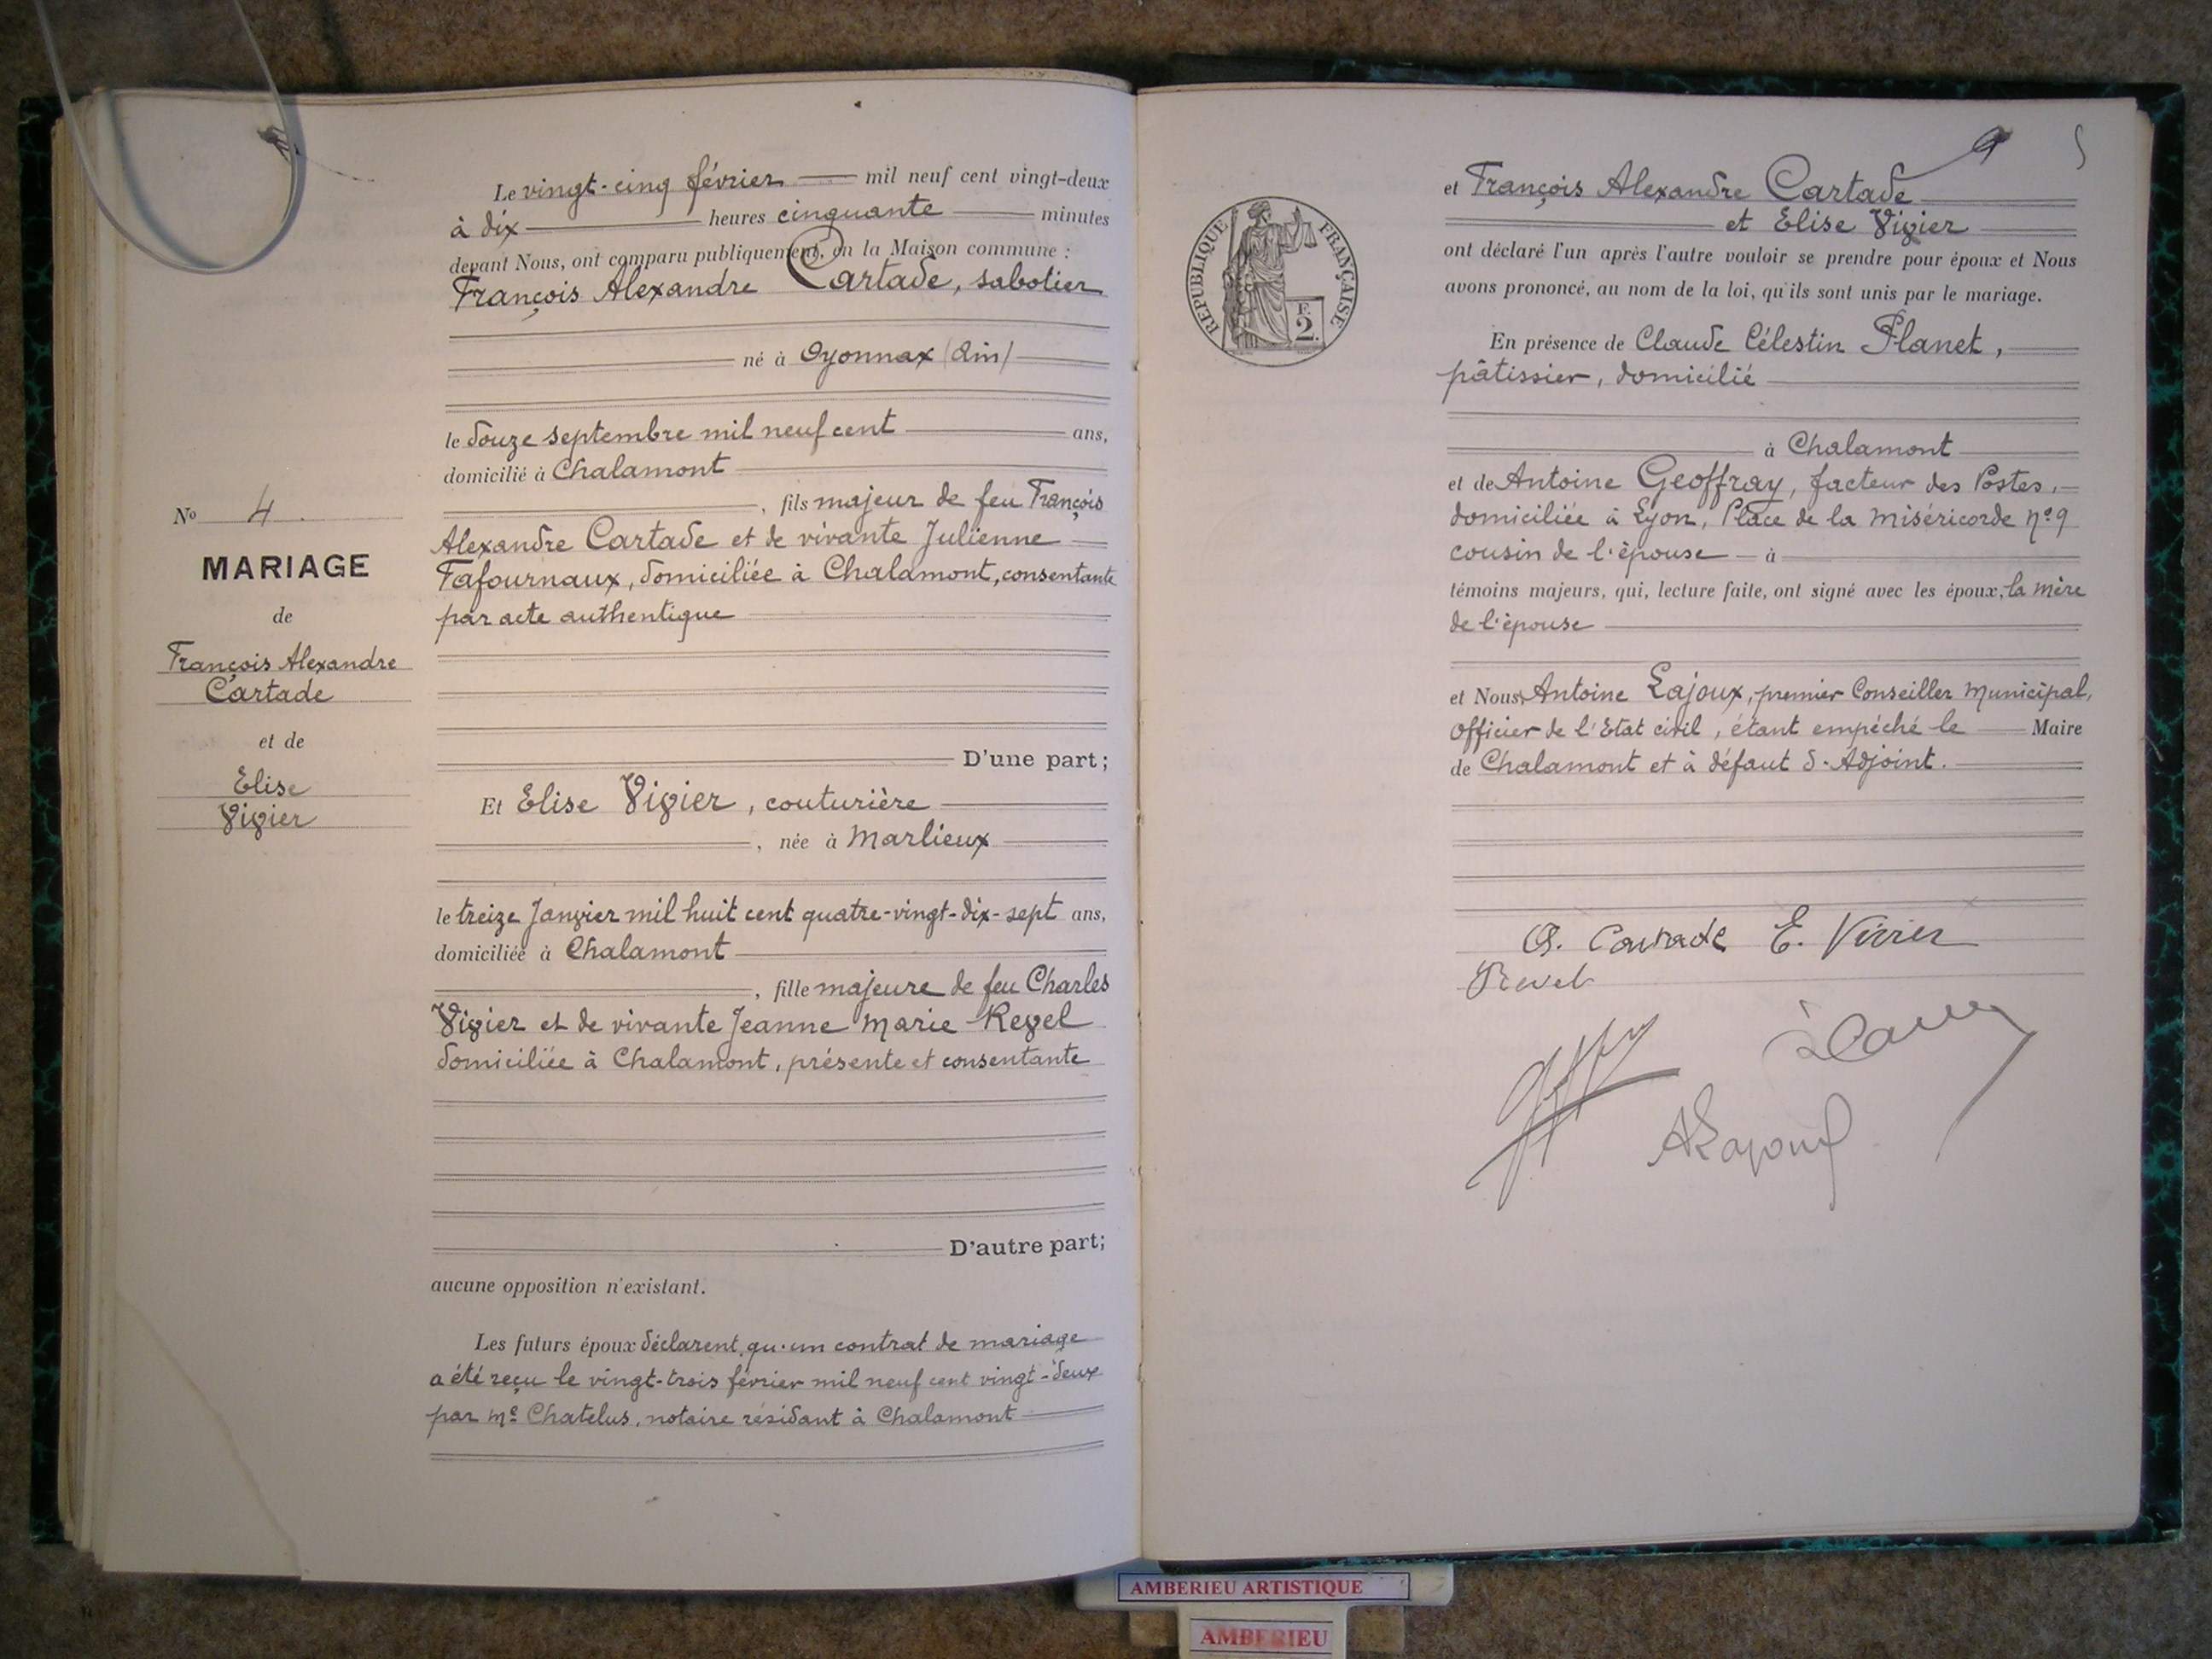 Le vingt-cinq février mil neuf cent vingt-deux
à dix heures cinquante minutes
devant Nous, ont comparu publiquement, en la Maison commune :
François Alexandre Cartade, sabotier
né à Oyonnax (Ain)
le douze septembre mil neuf cent ans,
domicilié à Chalamont
, fils majeur de feu François
Alexandre Cartade et de vivante Julienne
Tafournaux, domiciliée à Chalamont, consentante
par acte authentique
D'une part;
Et Elise Vivier, couturière
, née à Marlieux
le treize Janvier mil huit cent quatre-vingt-dix-sept ans,
domiciliée à Chalamont
, fille majeure de feu Charles
Vivier et de vivante Jeanne Marie Revel
domiciliée à Chalamont, présente et consentante
D'autre part;
aucune opposition n'existant.
Les futurs époux déclarent qu'un contrat de mariage
a été reçu le vingt-trois février mil neuf cent vingt-deux
par Me Chatelus, notaire résidant à Chalamont
No 4
MARIAGE
de
François Alexandre
Cartade
et de
Elise
Vivier
REPUBLIQUE FRANÇAISE
F.
2.
5
et François Alexandre Cartade
et Elise Vivier
ont déclaré l'un après l'autre vouloir se prendre pour époux et Nous
avons prononcé, au nom de la loi, qu'ils sont unis par le mariage.
En présence de Claude Célestin Planet,
pâtissier, domicilié
à Chalamont
et de Antoine Geoffray, facteur des Postes,
domiciliée à Lyon, Place de la Miséricorde no 9
cousin de l'épouse à
témoins majeurs, qui, lecture faite, ont signé avec les époux, la mère
de l'épouse
et Nous, Antoine Lajoux, premier Conseiller Municipal,
Officier de l'Etat civil, étant empêché le Maire
de Chalamont et à défaut d'Adjoint.
A. Cartade E. Vivier
Revel
ALajoux
AMBERIEU ARTISTIQUE
AMBERIEU